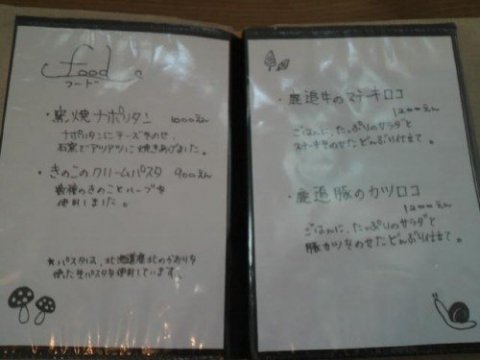 food
フード
・窯焼ナポリタン 1000えん
ナポリタンにチーズをのせ、
石窯でアツアツに焼きあげました。
・きのこのクリームパスタ 900えん
数種のきのことハーブを
使用しました。
*パスタは、北海道産
使った生パスタを使用しています。
・鹿追牛のステーキロコ
1200えん
ごはんに、たっぷりのサラダと
ステーキをのせたどんぶり仕立て。
・鹿追豚のカツロコ
1200えん
ごはんに、たっぷりのサラダと
豚カツをのせたどんぶり仕立て。